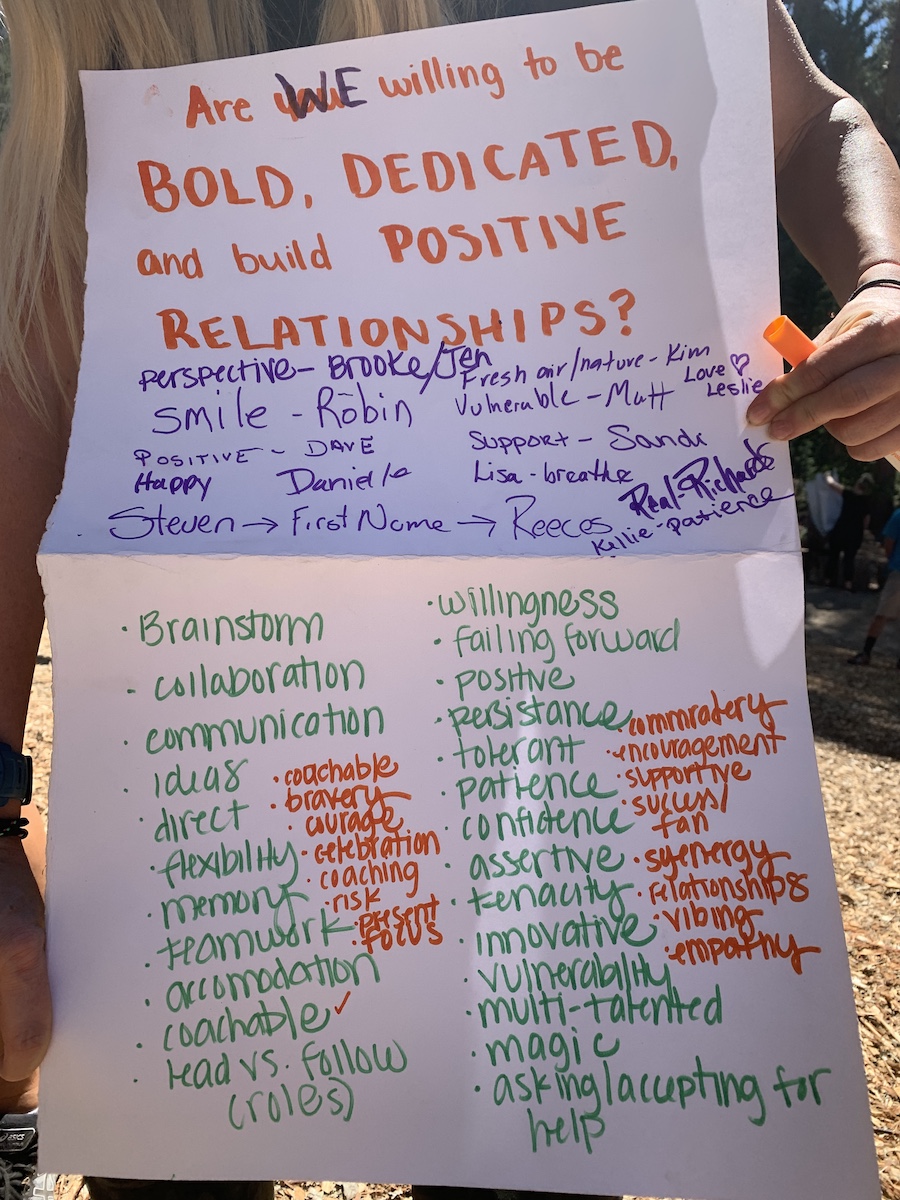 Are WE willing to be
BOLD, DEDICATED,
and build POSITIVE
RELATIONSHIPS?
perspective - Brooke/Jen
Smile - Robin
POSITIVE - DAVE
Happy Danielle
Fresh air/nature - Kim
Vulnerable - Matt
Love ♡
Leslie
Support - Sandi
Lisa - breathe
Real - Richards
Kellie - patience
Steven → First Name → Reeces
· Brainstorm
· collaboration
· communication
· ideas
· direct
· flexibility
· memory
· teamwork
· accomodation
· coachable ✓
· lead vs. follow
(roles)
· coachable
· bravery
· courage
· celebration
· coaching
· risk
· present
focus
· willingness
· failing forward
· positive
· persistance
· tolerant
· patience
· confidence
· assertive
· tenacity
· innovative
· vulnerability
· multi-talented
· magic
· asking/accepting for
help
· commradery
· encouragement
· supportive
· success/
fan
· syenergy
· relationships
· vibing
· empathy
asics